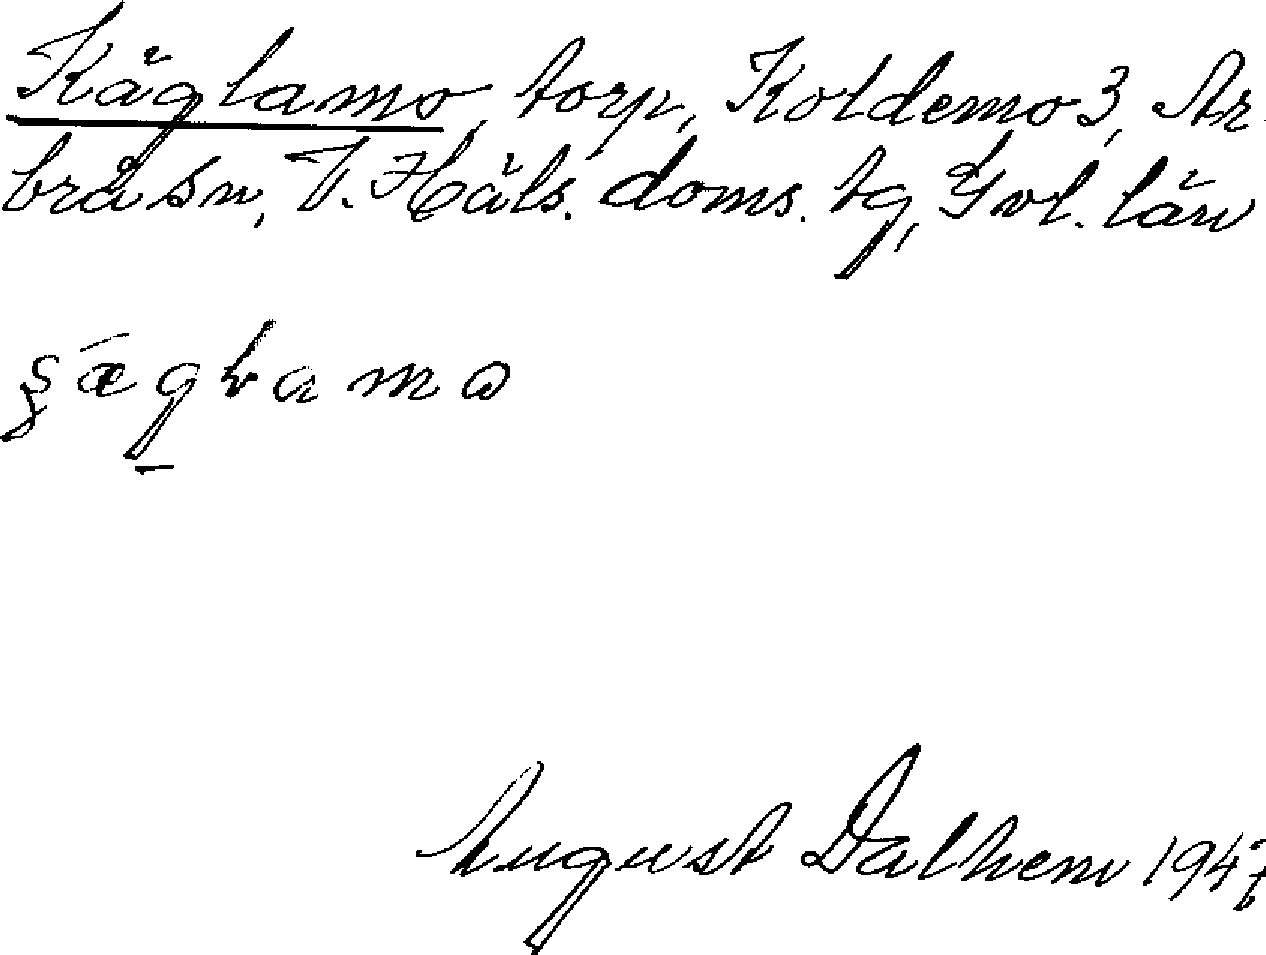 Käglamo, torp, Koldemo 3, Ar-
brå sn, V. Häls. doms. tg, Gvl. län
August Dalhem 1947